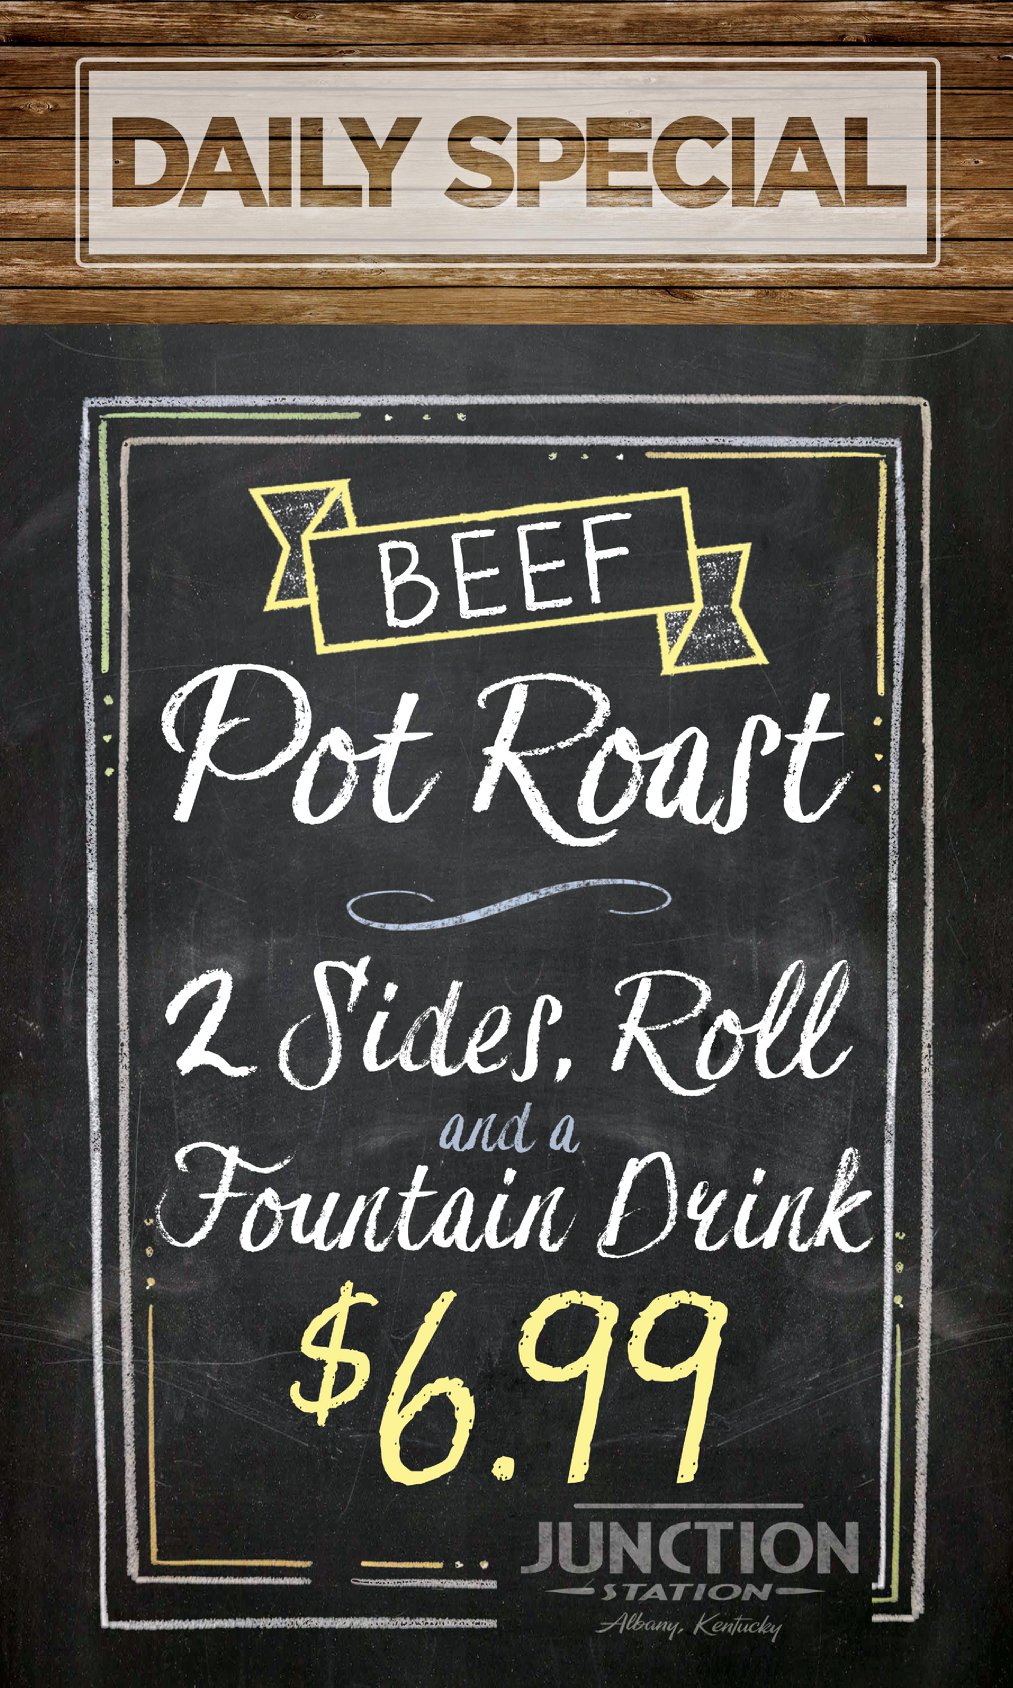 DAILY SPECIAL
BEEF
Pot Roast
2 Sides, Roll
and a
Fountain Drink
$6.99
JUNCTION
STATION
Albany, Kentucky